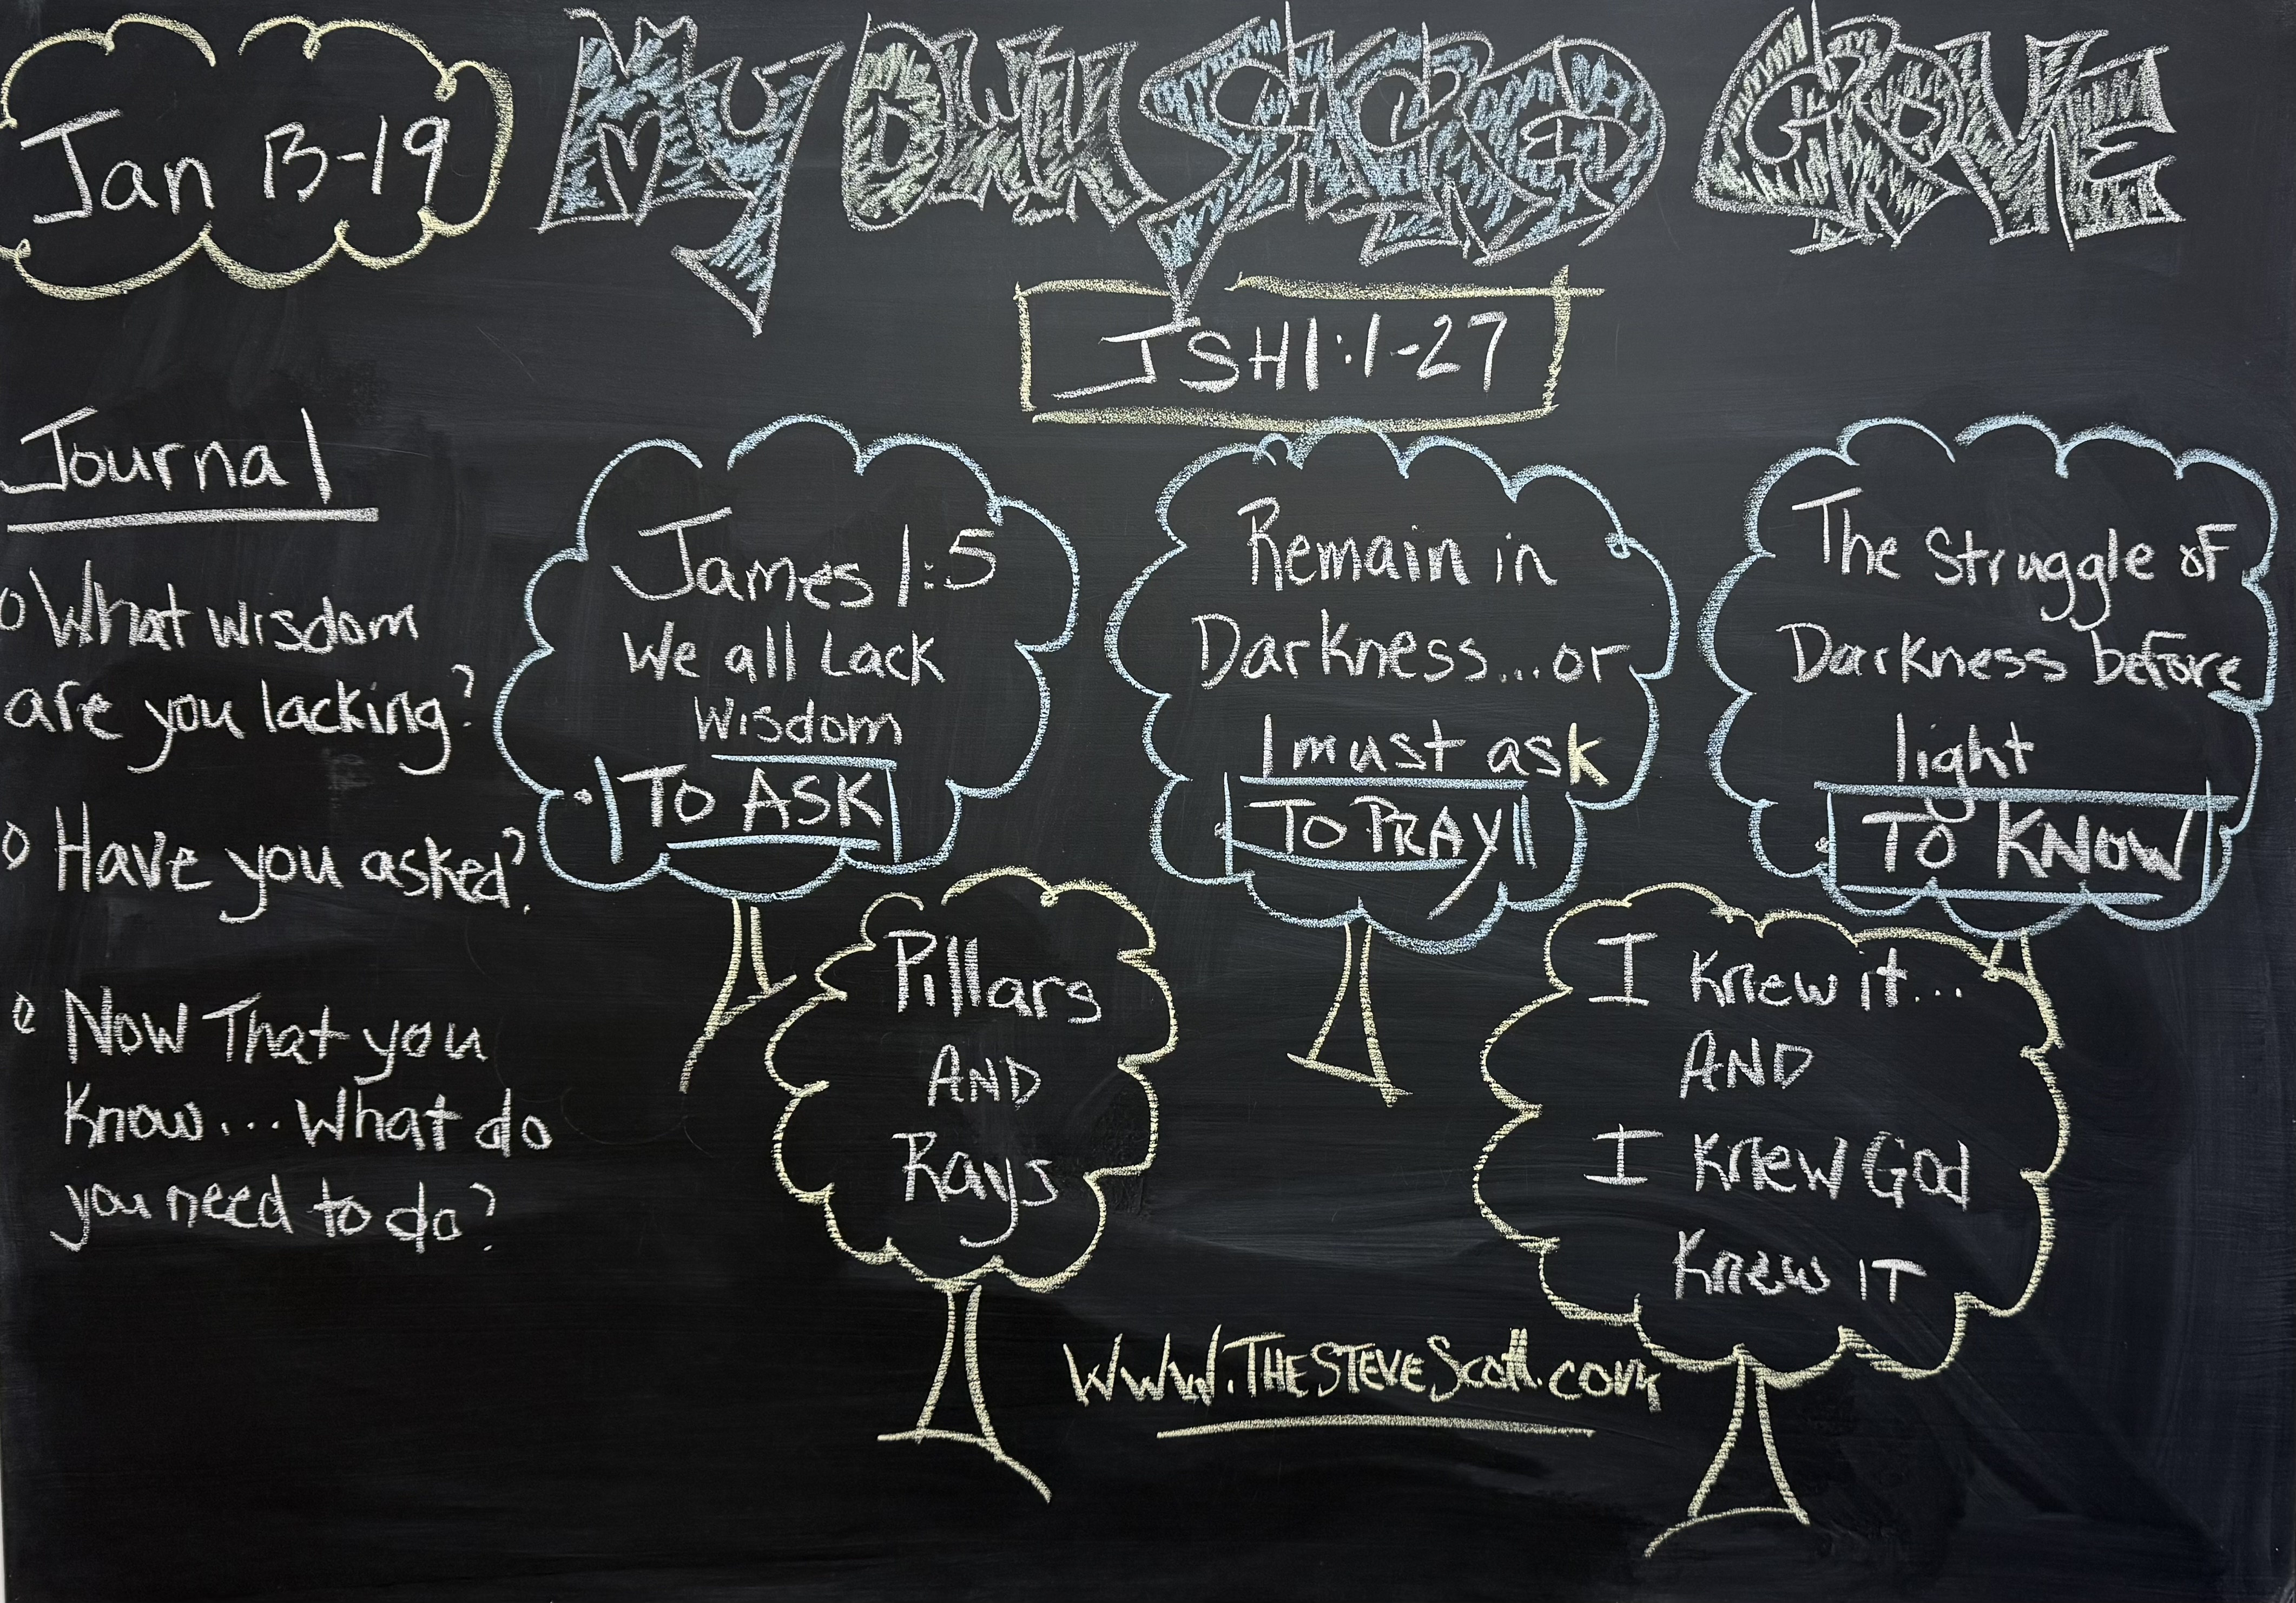 Jan 13-19
My Own Sacred Grove
JSH1:1-27
Journal
What wisdom
are you lacking?
Have you asked?
Now That you
Know...What do
you need to do?
James 1:5
We all Lack
Wisdom
To ASK
Remain in
Darkness...or
I must ask
To PRAY
The Struggle of
Darkness before
light
To KNOW
Pillars
AND
Rays
I Knew it...
AND
I Knew God
Knew IT
WWW.THESTEVEScott.com